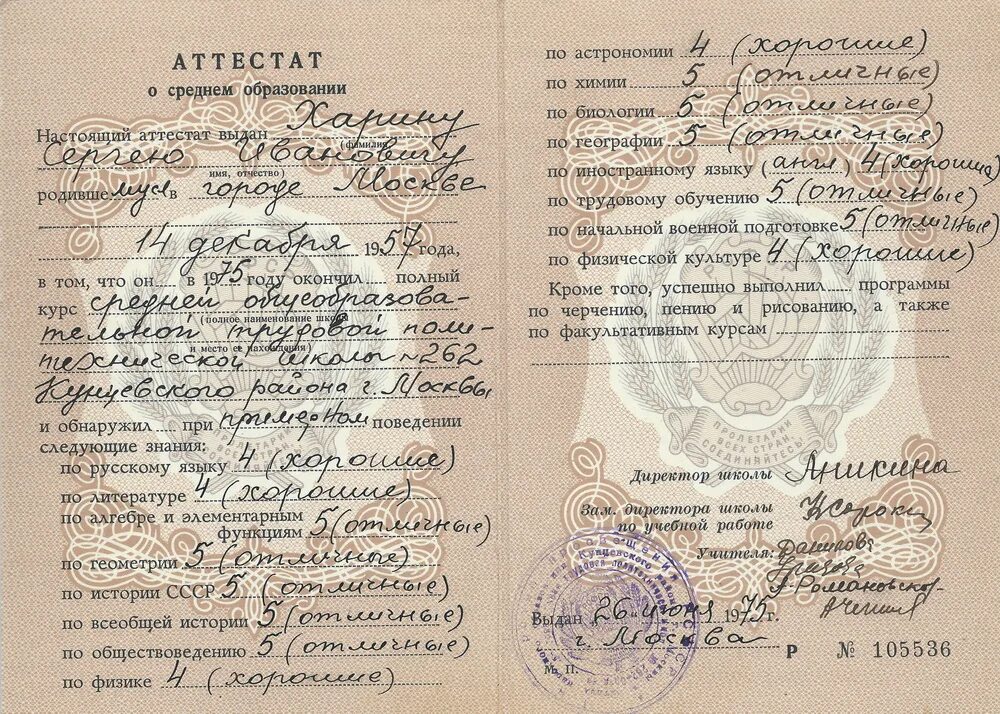 АТТЕСТАТ
о среднем образовании
Настоящий аттестат выдан Харину
(фамилия,
Сергею Ивановичу
имя, отчество)
родившемуся в городе Москве
14 декабря 1957 года,
в том, что он в 1975 году окончил полный
курс средней общеобразова-
(полное наименование школы
тельной трудовой поли-
и место ее нахождения)
технической школы №262
Кунцевского района г. Москвы
и обнаружил при примерном поведении
следующие знания:
по русскому языку 4 (хорошие)
по литературе 4 (хорошие)
по алгебре и элементарным
функциям 5 (отличные)
по геометрии 5 (отличные)
по истории СССР 5 (отличные)
по всеобщей истории 5 (отличные)
по обществоведению 5 (отличные)
по физике 4 (хорошие)
по астрономии 4 (хорошие)
по химии 5 (отличные)
по биологии 5 (отличные)
по географии 5 (отличные)
по иностранному языку (англ.) 4 (хорошие)
по трудовому обучению 5 (отличные)
по начальной военной подготовке 5 (отличные)
по физической культуре 4 (хорошие)
Кроме того, успешно выполнил программы
по черчению, пению и рисованию, а также
по факультативным курсам
ПРОЛЕТАРИИ
ВСЕХ СТРАН,
СОЕДИНЯЙТЕСЬ
Директор школы Аникина
Зам. директора школы
по учебной работе
Учителя:
Выдан 26 июня 1975 г.
г. Москва
М. П.
Р № 105536